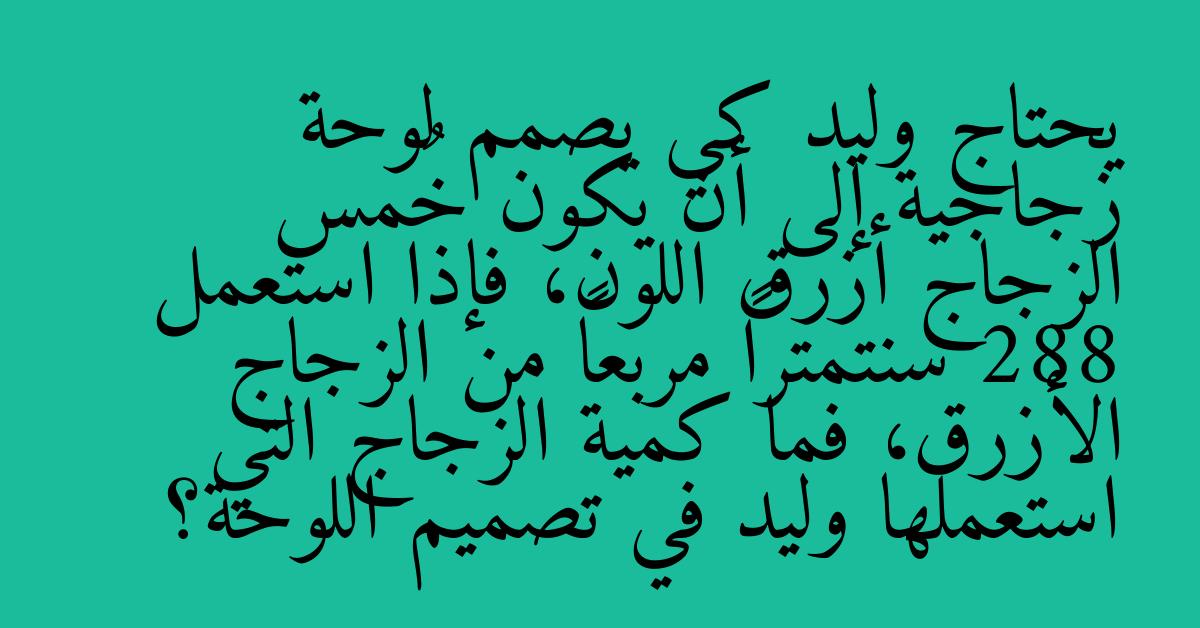 يحتاج وليد كي يصمم لُوحة
زجاجية إلى أن يكون خمس
الزجاج أزرقٍ اللونٍ، فإذا استعمل
288 سنتمترا مربعا من الزجاج
الأزرق، فما كمية الزجاج التي
استعملها وليد في تصميم اللوحة؟